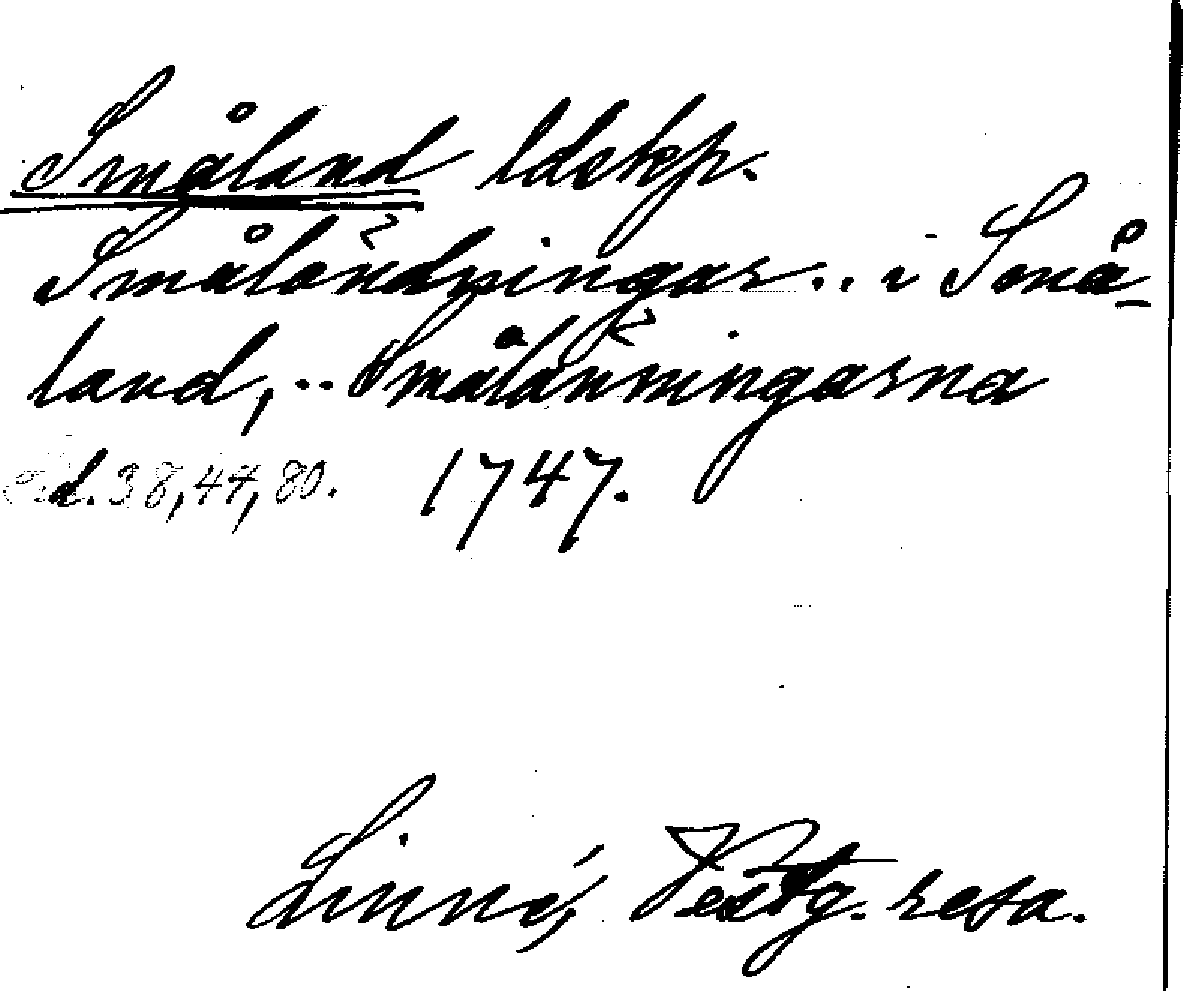 Småland ldskp.
Småländningar .. i Små-
land, .. Smålänningarna
Sid. 38, 44, 80. 1747.
Linné, Västg. resa.